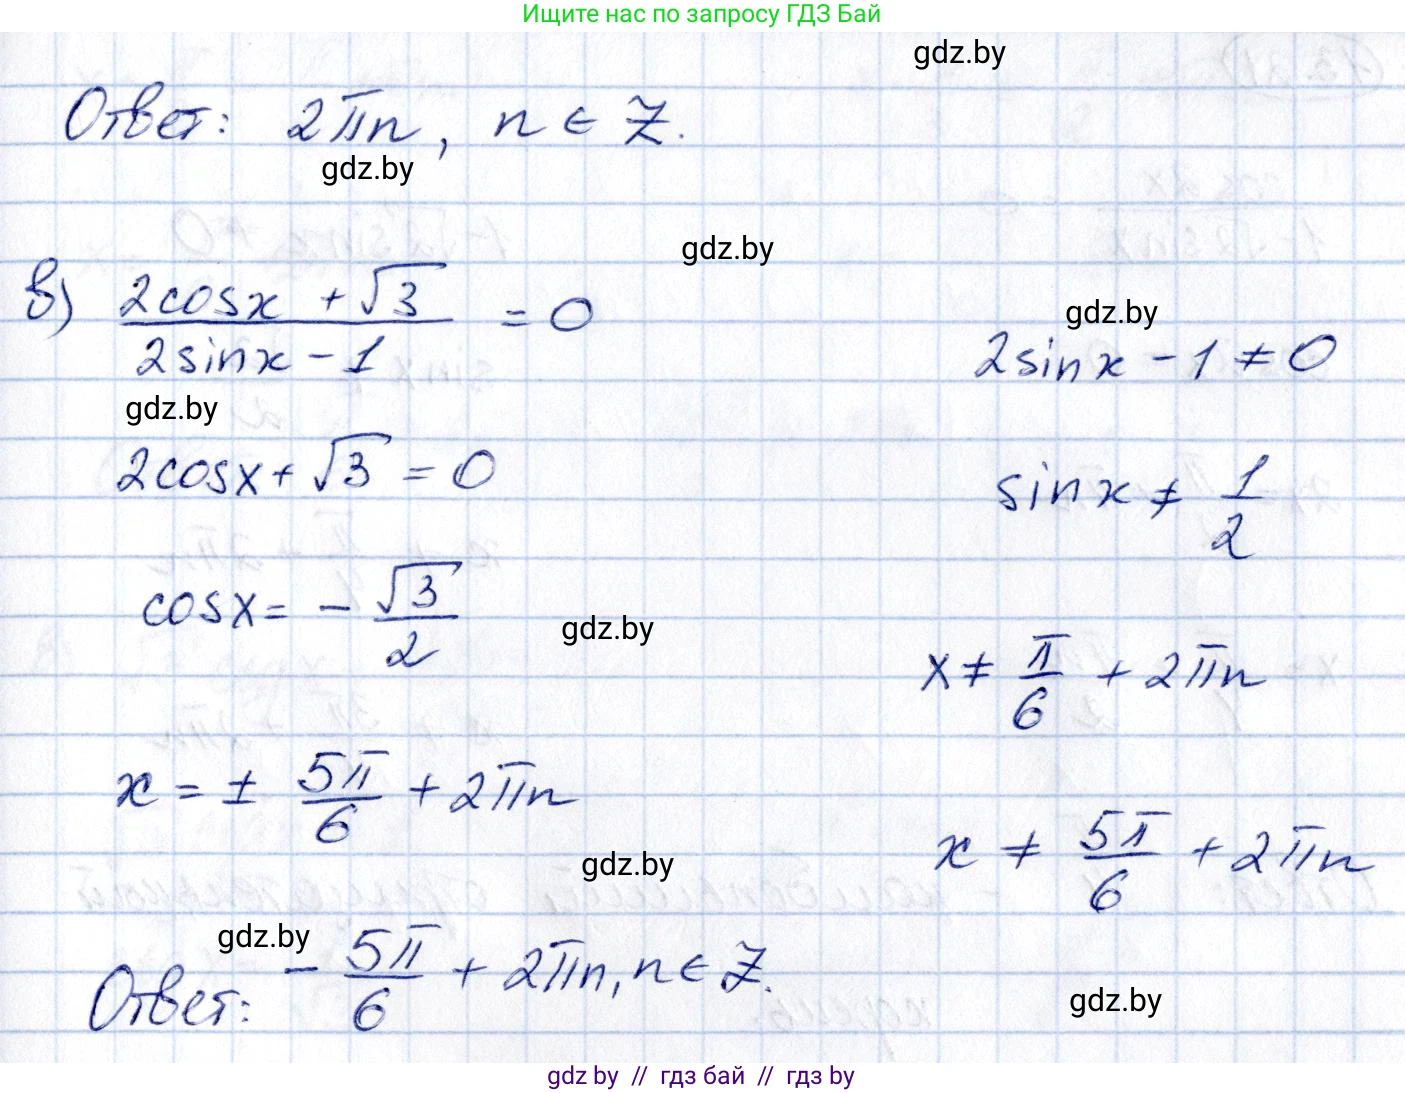 Ищите нас по запросу ГДЗ Бай
gdz.by
Ответ: 2πn, n ∈ Z.
gdz.by
gdz.by
в) (2cosx + √3)/(2sinx - 1) = 0
gdz.by
2sinx - 1 ≠ 0
gdz.by
2cosx + √3 = 0
sinx ≠ 1/2
cosx = - √3/2
gdz.by
x ≠ π/6 + 2πn
x = ± 5π/6 + 2πn
x ≠ 5π/6 + 2πn
gdz.by
gdz.by
Ответ: - 5π/6 + 2πn, n ∈ Z.
gdz.by
gdz by // гдз бай // гдз by